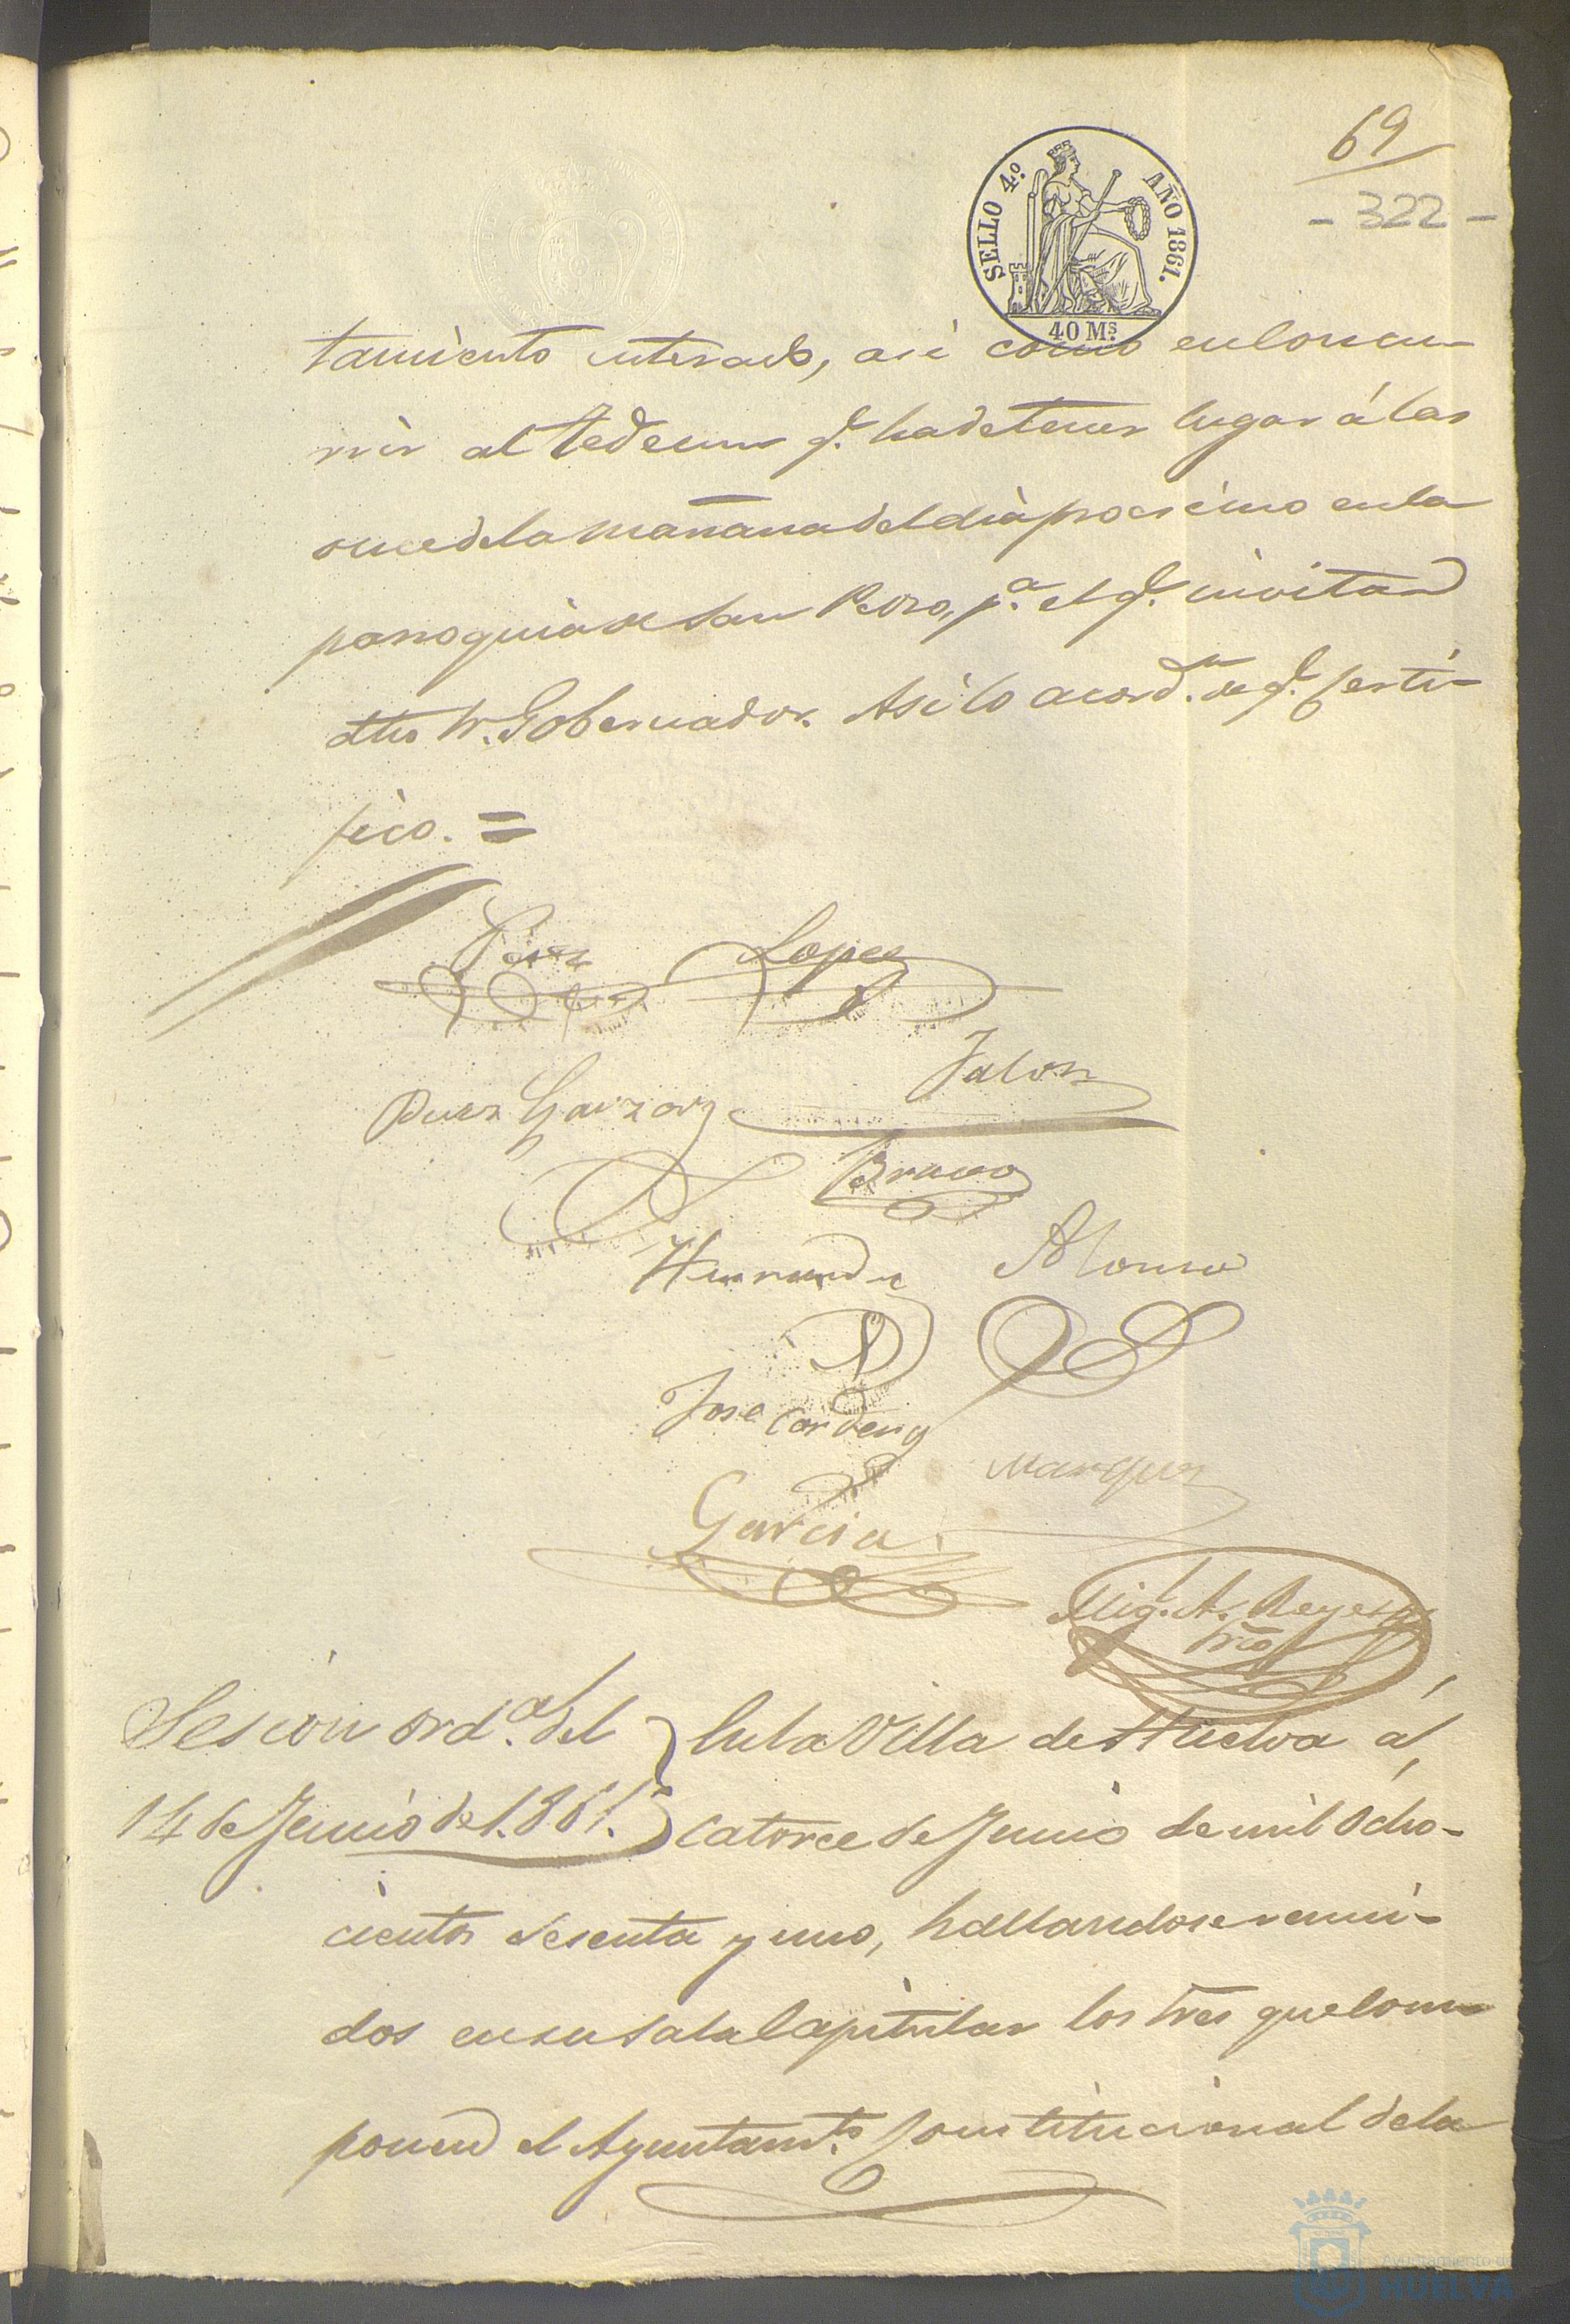 69
- 322 -
SELLO 4.º AÑO 1861.
40 Ms.
tamiento enterado, asi como en concur-
rir al Tedeum q.e ha de tener lugar á las
once de la mañana del dia procsimo en la
parroquia de San Pedro, p.a el q.e invita
dho Sr. Gobernador. Asi lo acord.n de q.e certi-
fico. =
Perez Lopez
Jalon
Perez Garzon
Bravo
Hernandez Alonso
Jose Cardenas
Marquez
Garcia
Mig.l A. Reyes
Srio
Sesion ord.a del
14 de Junio de 1.861.
En la Villa de Huelva á
catorce de Junio de mil ocho-
cientos sesenta y uno, hallandose reuni-
dos en su Sala Capitular los Sres que com-
ponen el Ayuntam.to Constitucional de la
Ayuntamiento de
HUELVA